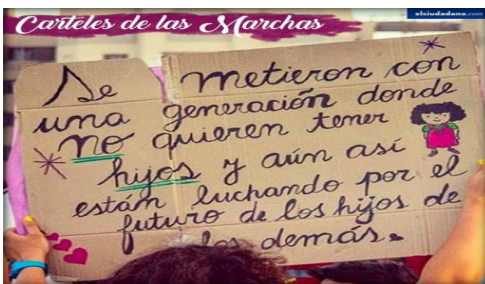 Carteles de las Marchas
elciudadano.com
Se metieron con
una generación donde
no quieren tener
hijos y aún así
están luchando por el
futuro de los hijos de
los demás.